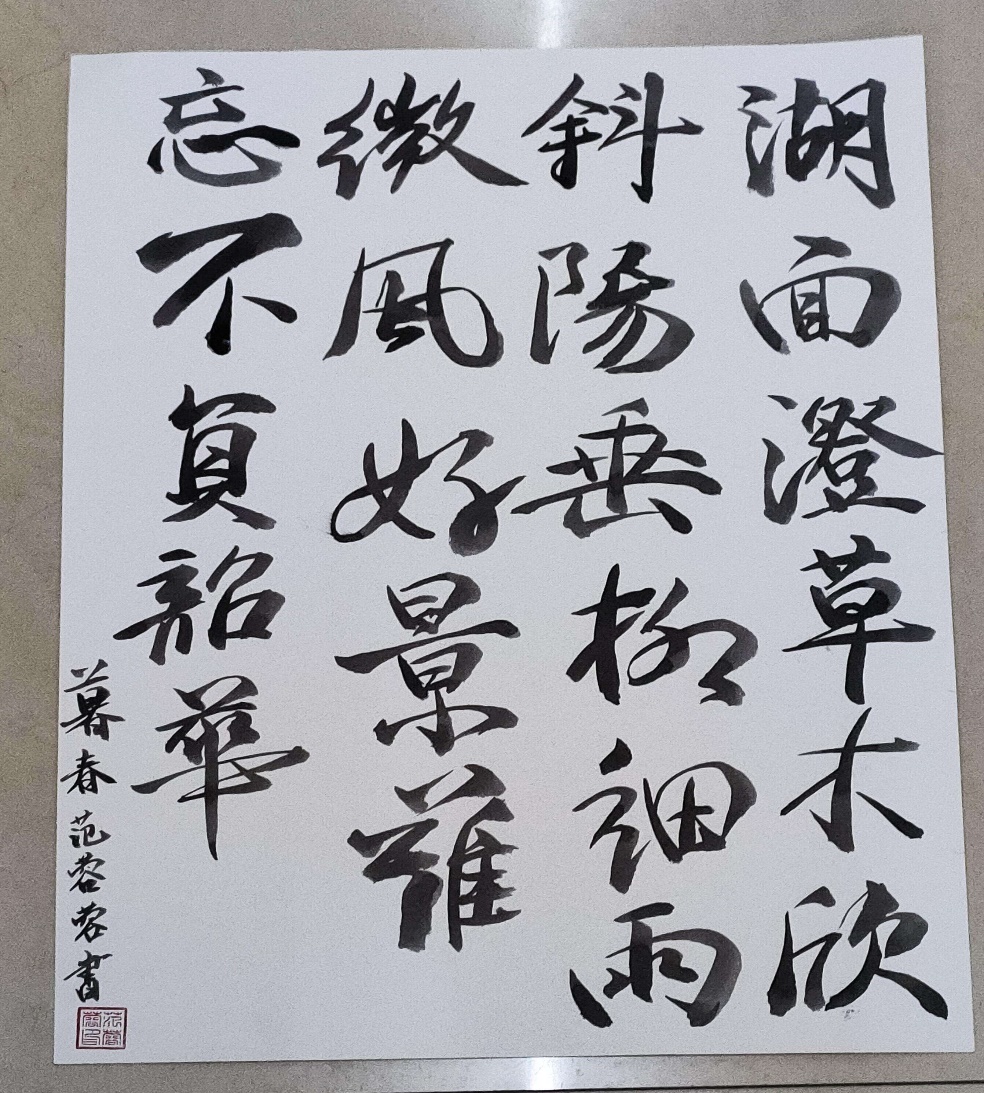 湖面澄草木欣
斜陽垂柳細雨
微風好景難
忘不負韶華
暮春范蓉蓉書